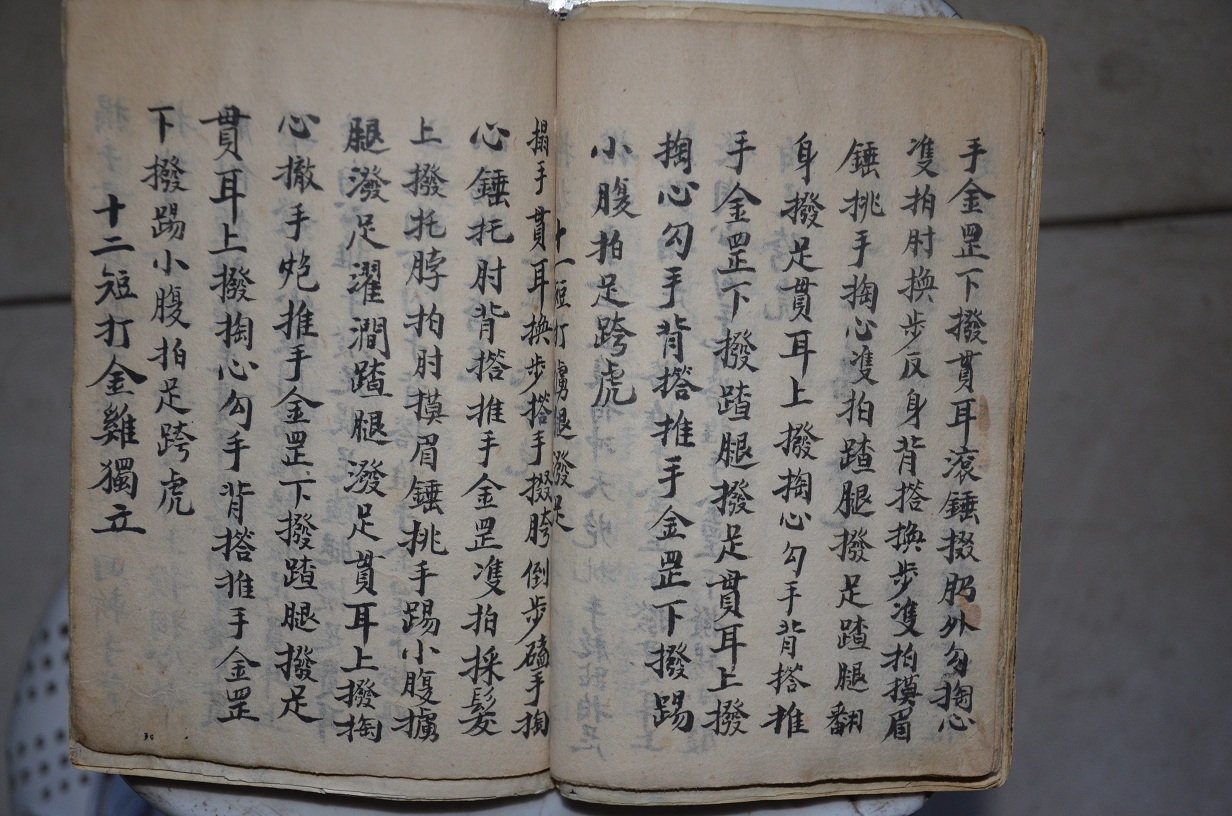 手金罡下撥贯耳滚錘掇肕外勾掏心
隻拍肘换步反身背搭换步隻拍摸眉
錘挑手掏心隻拍踏腿撥足踏腿翻
身撥足貫耳上撥掏心勾手背搭推
手金罡下撥踏腿撥足貫耳上撥
掏心勾手背搭推手金罡下撥踢
小腹拍足跨虎
十一短打 腿 足
搨手貫耳換步搭手掇胯倒步磕手掏
心錘托肘背搭推手金罡隻拍採髮
上撥托脖拍肘摸眉錘挑手踢小腹擄
腿潑足濯澗踏腿潑足貫耳上撥掏
心撤手炮推手金罡下撥踏腿撥足
貫耳上撥掏心勾手背搭推手金罡
下撥踢小腹拍足跨虎
十二短打金雞獨立